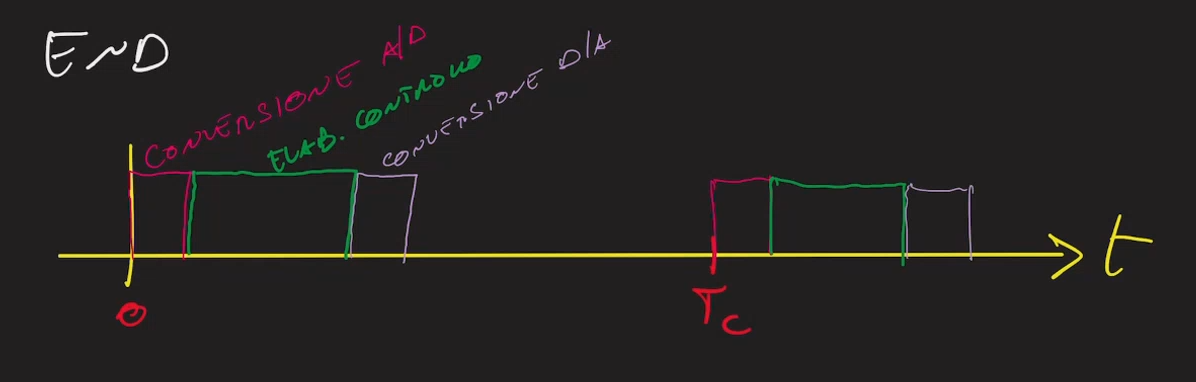 END
CONVERSIONE A/D
ELAB. CONTROLLO
CONVERSIONE D/A
t
0
Tc